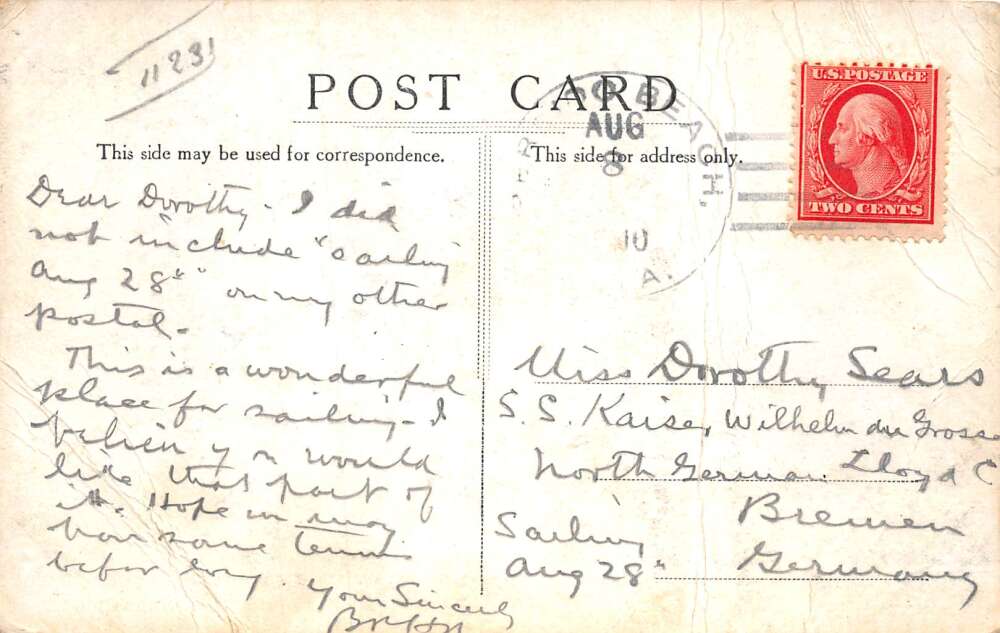 11231
POST CARD
This side may be used for correspondence.
This side for address only.
BEACH,
AUG
8
10
A.
U.S. POSTAGE
TWO CENTS
Dear Dorothy - I did
not include "sailing
Aug 28th" on my other
postal.
This is a wonderful
place for sailing - I
believ you would
like that part of
it. Hope we may
have some tennis
before long.
Yours Sincerely
Miss Dorothy Sears
S. S. Kaiser Wilhelm der Grosse
North German Lloyd C
Bremen
Germany
Sailing
Aug 28th